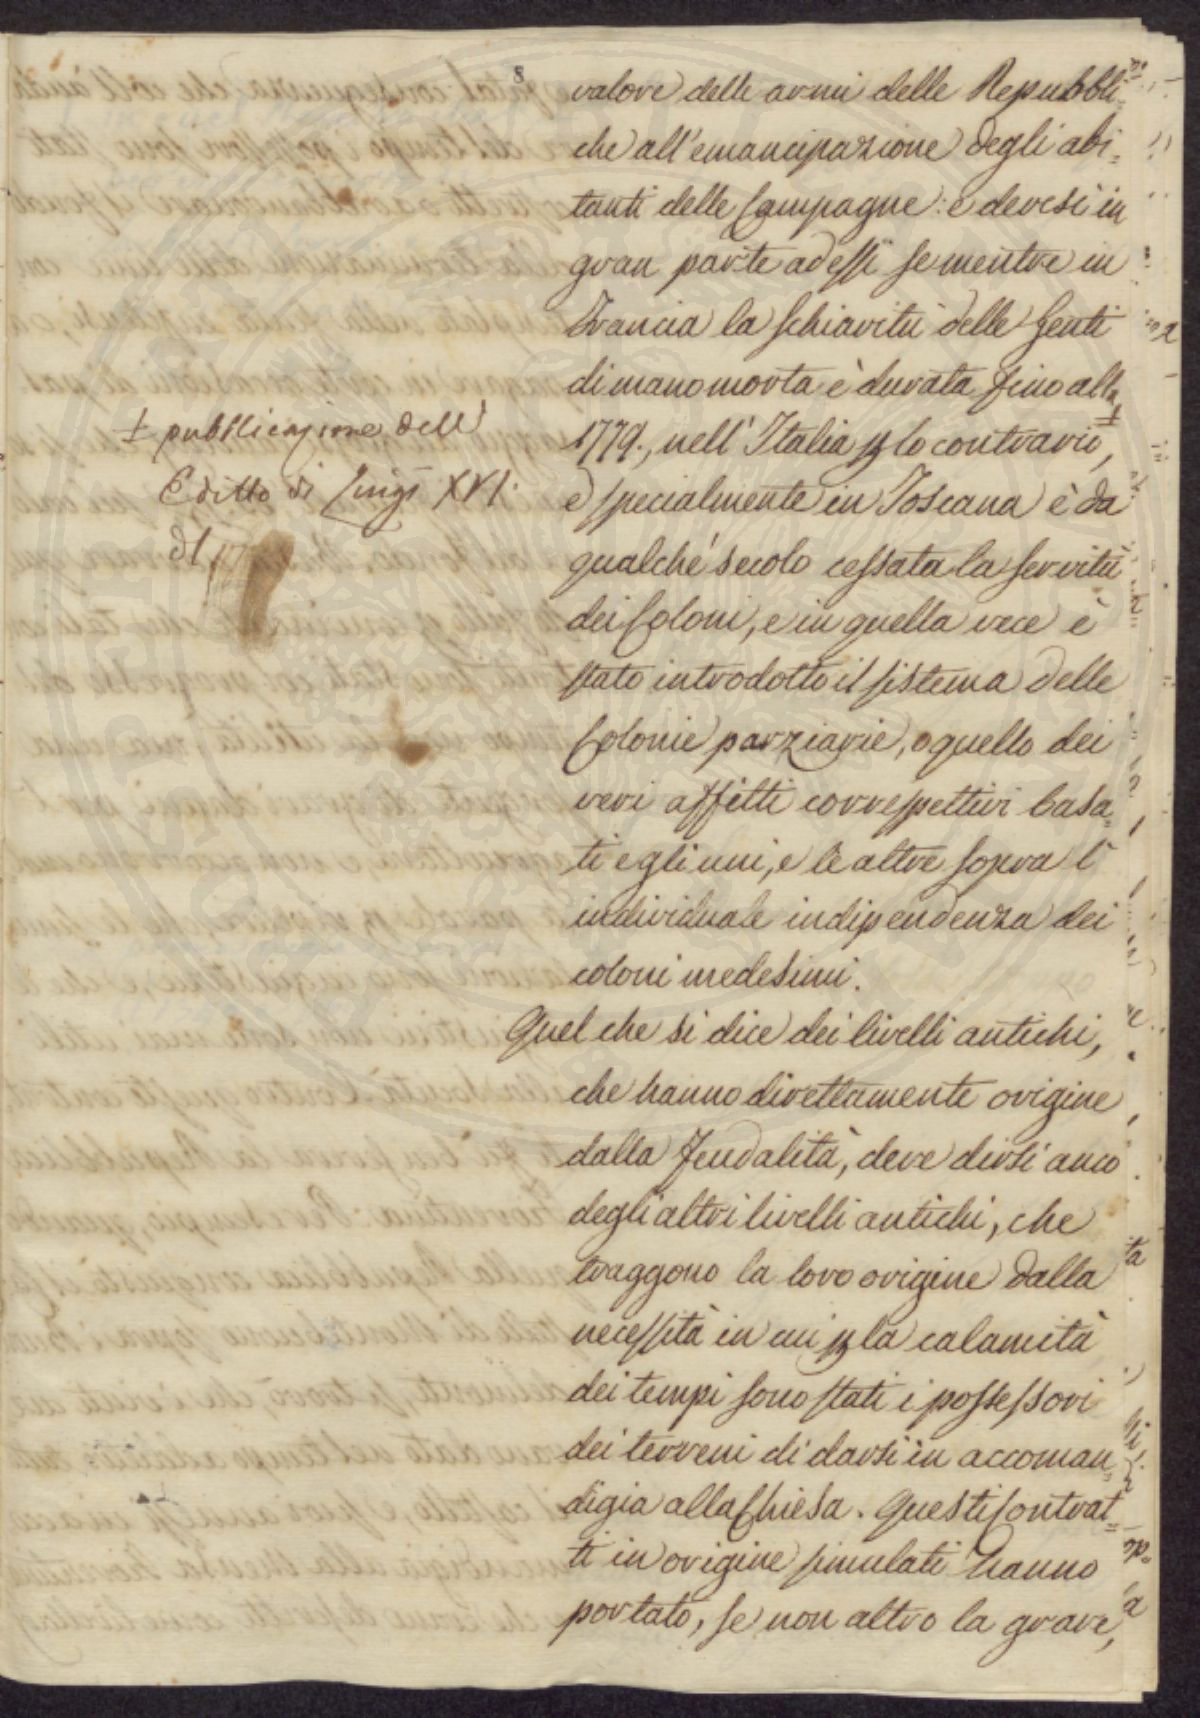 8
valore delle armi delle Repubbli=
che all'emancipazione degli abi=
tanti delle Campagne: e devesi in
gran parte ad essi se mentre in
Francia la schiavitù delle Genti
di mano morta è durata fino alla ±
1779., nell'Italia p lo contrario,
e specialmente in Toscana è da
qualche secolo cessata la servitù
dei Coloni, e in quella vece è
stato introdotto il sistema delle
Colonie parziarie, o quello dei
veri affitti correspettivi basa=
ti e gli uni, e le altre sopra l'
individuale indipendenza dei
coloni medesimi.
Quel che si dice dei livelli antichi,
che hanno direttamente origine
dalla Feudalità, deve dirsi anco
degli altri livelli antichi, che
traggono la loro origine dalla
necessità in cui p la calamità
dei tempi sono stati i possessori
dei terreni di darsi in accoman=
digia alla Chiesa. Questi Contrat=
ti in origine simulati hanno
portato, se non altro la grave,
± pubblicazione dell'
Editto di Luigi XVI.
del